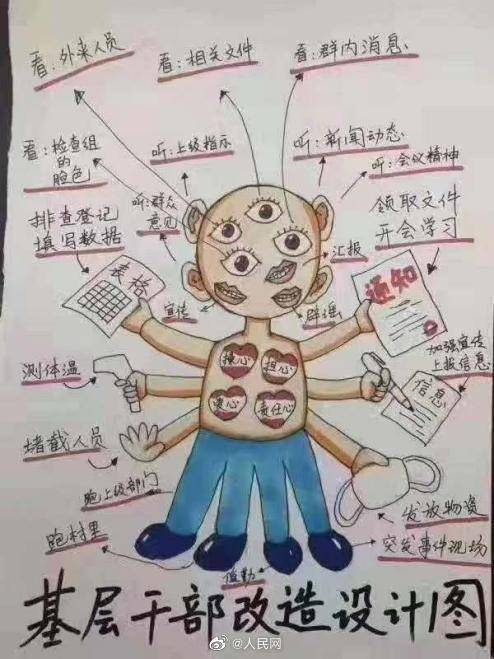 看：外来人员
看：相关文件
看：群内消息
看：检查组
的
脸色
听：上级指示
听：新闻动态
听：会议精神
听：群众
意见
排查登记
填写数据
领取文件
开会学习
汇报
宣传
辟谣
表格
通知
加强宣传
上报信息
测体温
操心
担心
衷心
责任心
信息
堵截人员
跑上级部门
发放物资
跑村里
值勤
突发事件现场
基层干部改造设计图
@人民网